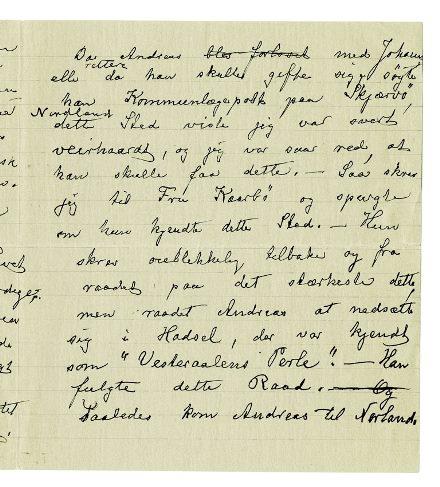 Da Andreas blev forlovet med Johann
elle rettere da han skulle gifte sig, søgte
han Kommunelægepost paa "Skjærvø",
Nordland
dette Sted viste jeg var svært
veirhaardt, og jeg var saar ved, at
han skulle faa dette. — Saa skrev
jeg til Fru Kaarbø og spurgte
om hun kjendte dette Sted. — Hun
skrev øieblikkelig tilbake og fra
raadet paa det stærkeste dette,
men raadet Andreas at nedsætte
sig i Hadsel, der var kjendt
som "Vesteraalens Perle". — Han
fulgte dette Raad. — Og
Saaledes kom Andreas til Norland.